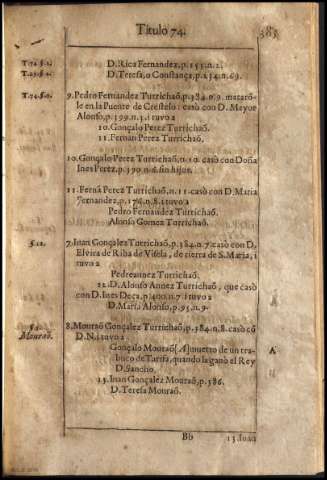 Titulo 74.
385
T.74.§.2. D. Rica Fernandez, p.155.n.2.
T.25.§.2. D. Teresa, o Constança, p.154.n.69.
T.74.§.9. 9. Pedro Fernandez Turrichaõ, p.384.n.9. mataró-
le en la Puente de Crestelo: casò con D. Mayor
Alonso, p.399.n.3. i tuvo a
10. Gonçalo Perez Turrichaõ.
11. Fernan Perez Turrichaõ.
10. Gonçalo Perez Turrichaõ, n.10. casò con Doña
Ines Perez, p.390.n.6. sin hijos.
11. Fernã Perez Turrichaõ, n.11. casò con D. Maria
Fernandez, p.176.n.8. i tuvo a
Pedro Fernandez Turrichaõ.
Alonso Gomez Turrichaõ.
§.12. 7. Iuan Gonçalez Turrichaõ, p.384.n.7. casò con D.
Elvira de Riba de Visela, de tierra de S. Maria, i
tuvo a
Pedreannez Turrichaõ.
12. D. Alonso Annez Turrichaõ, que casò
con D. Ines Deça, p.400.n.7. i tuvo a
D. Maria Alonso, p.95.n.9.
Mouraõ. 8. Mouraõ Gonçalez Turrichaõ, p.384.n.8. casò cõ
D. N. i tuvo a
Gonçalo Mouraõ [A] muerto de un tra-
A
buco de Tarifa, quando la ganò el Rey
D. Sancho.
13. Iuan Gonçalez Mouraõ, p.386.
D. Teresa Mouraõ.
Bb
13 Iuan